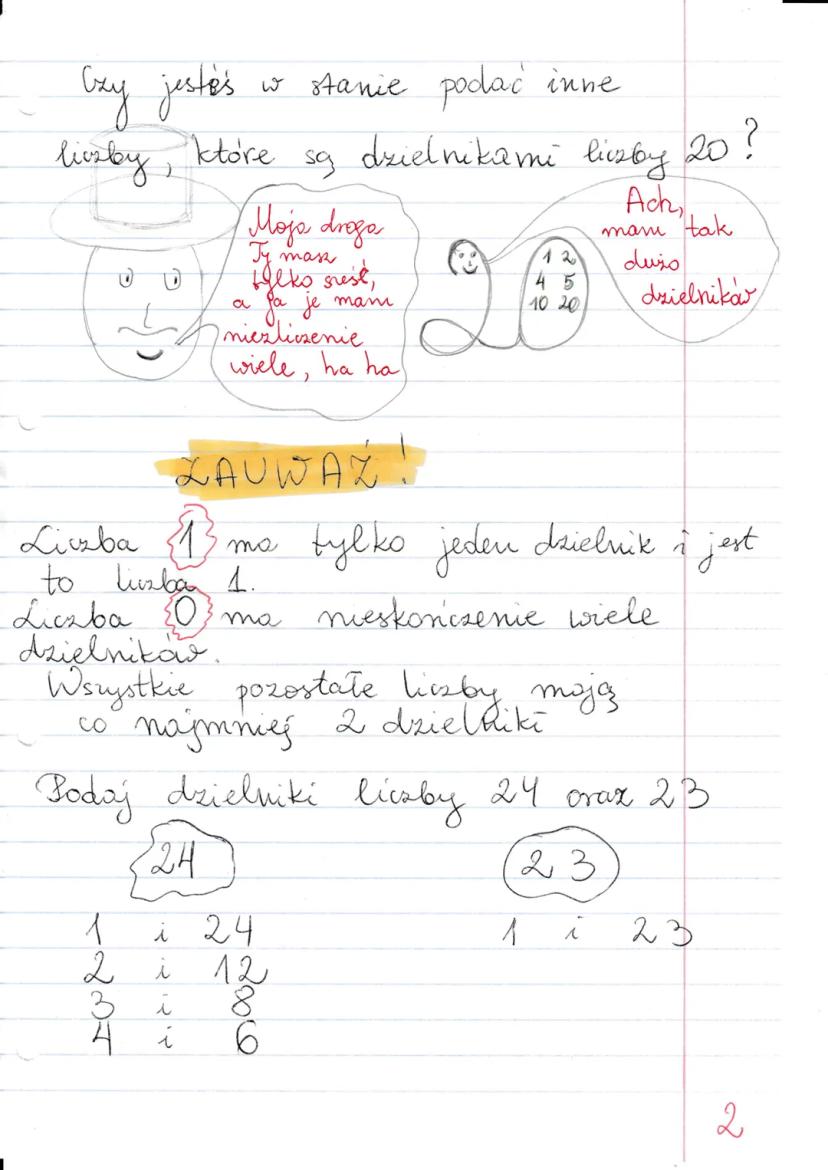 Czy jesteś w stanie podać inne
liczby, które są dzielnikami liczby 20?
Moja droga
Ty masz
tylko sześć,
a ja je mam
niezliczenie
wiele, ha ha
20
1 2
4 5
10 20
Ach,
mam tak
dużo
dzielników
ZAUWAŻ!
Liczba 1 ma tylko jeden dzielnik i jest
to liczba 1.
Liczba 0 ma nieskończenie wiele
dzielników.
Wszystkie pozostałe liczby mają
co najmniej 2 dzielniki
Podaj dzielniki liczby 24 oraz 23
24
23
1 i 24
1 i 23
2 i 12
3 i 8
4 i 6
2